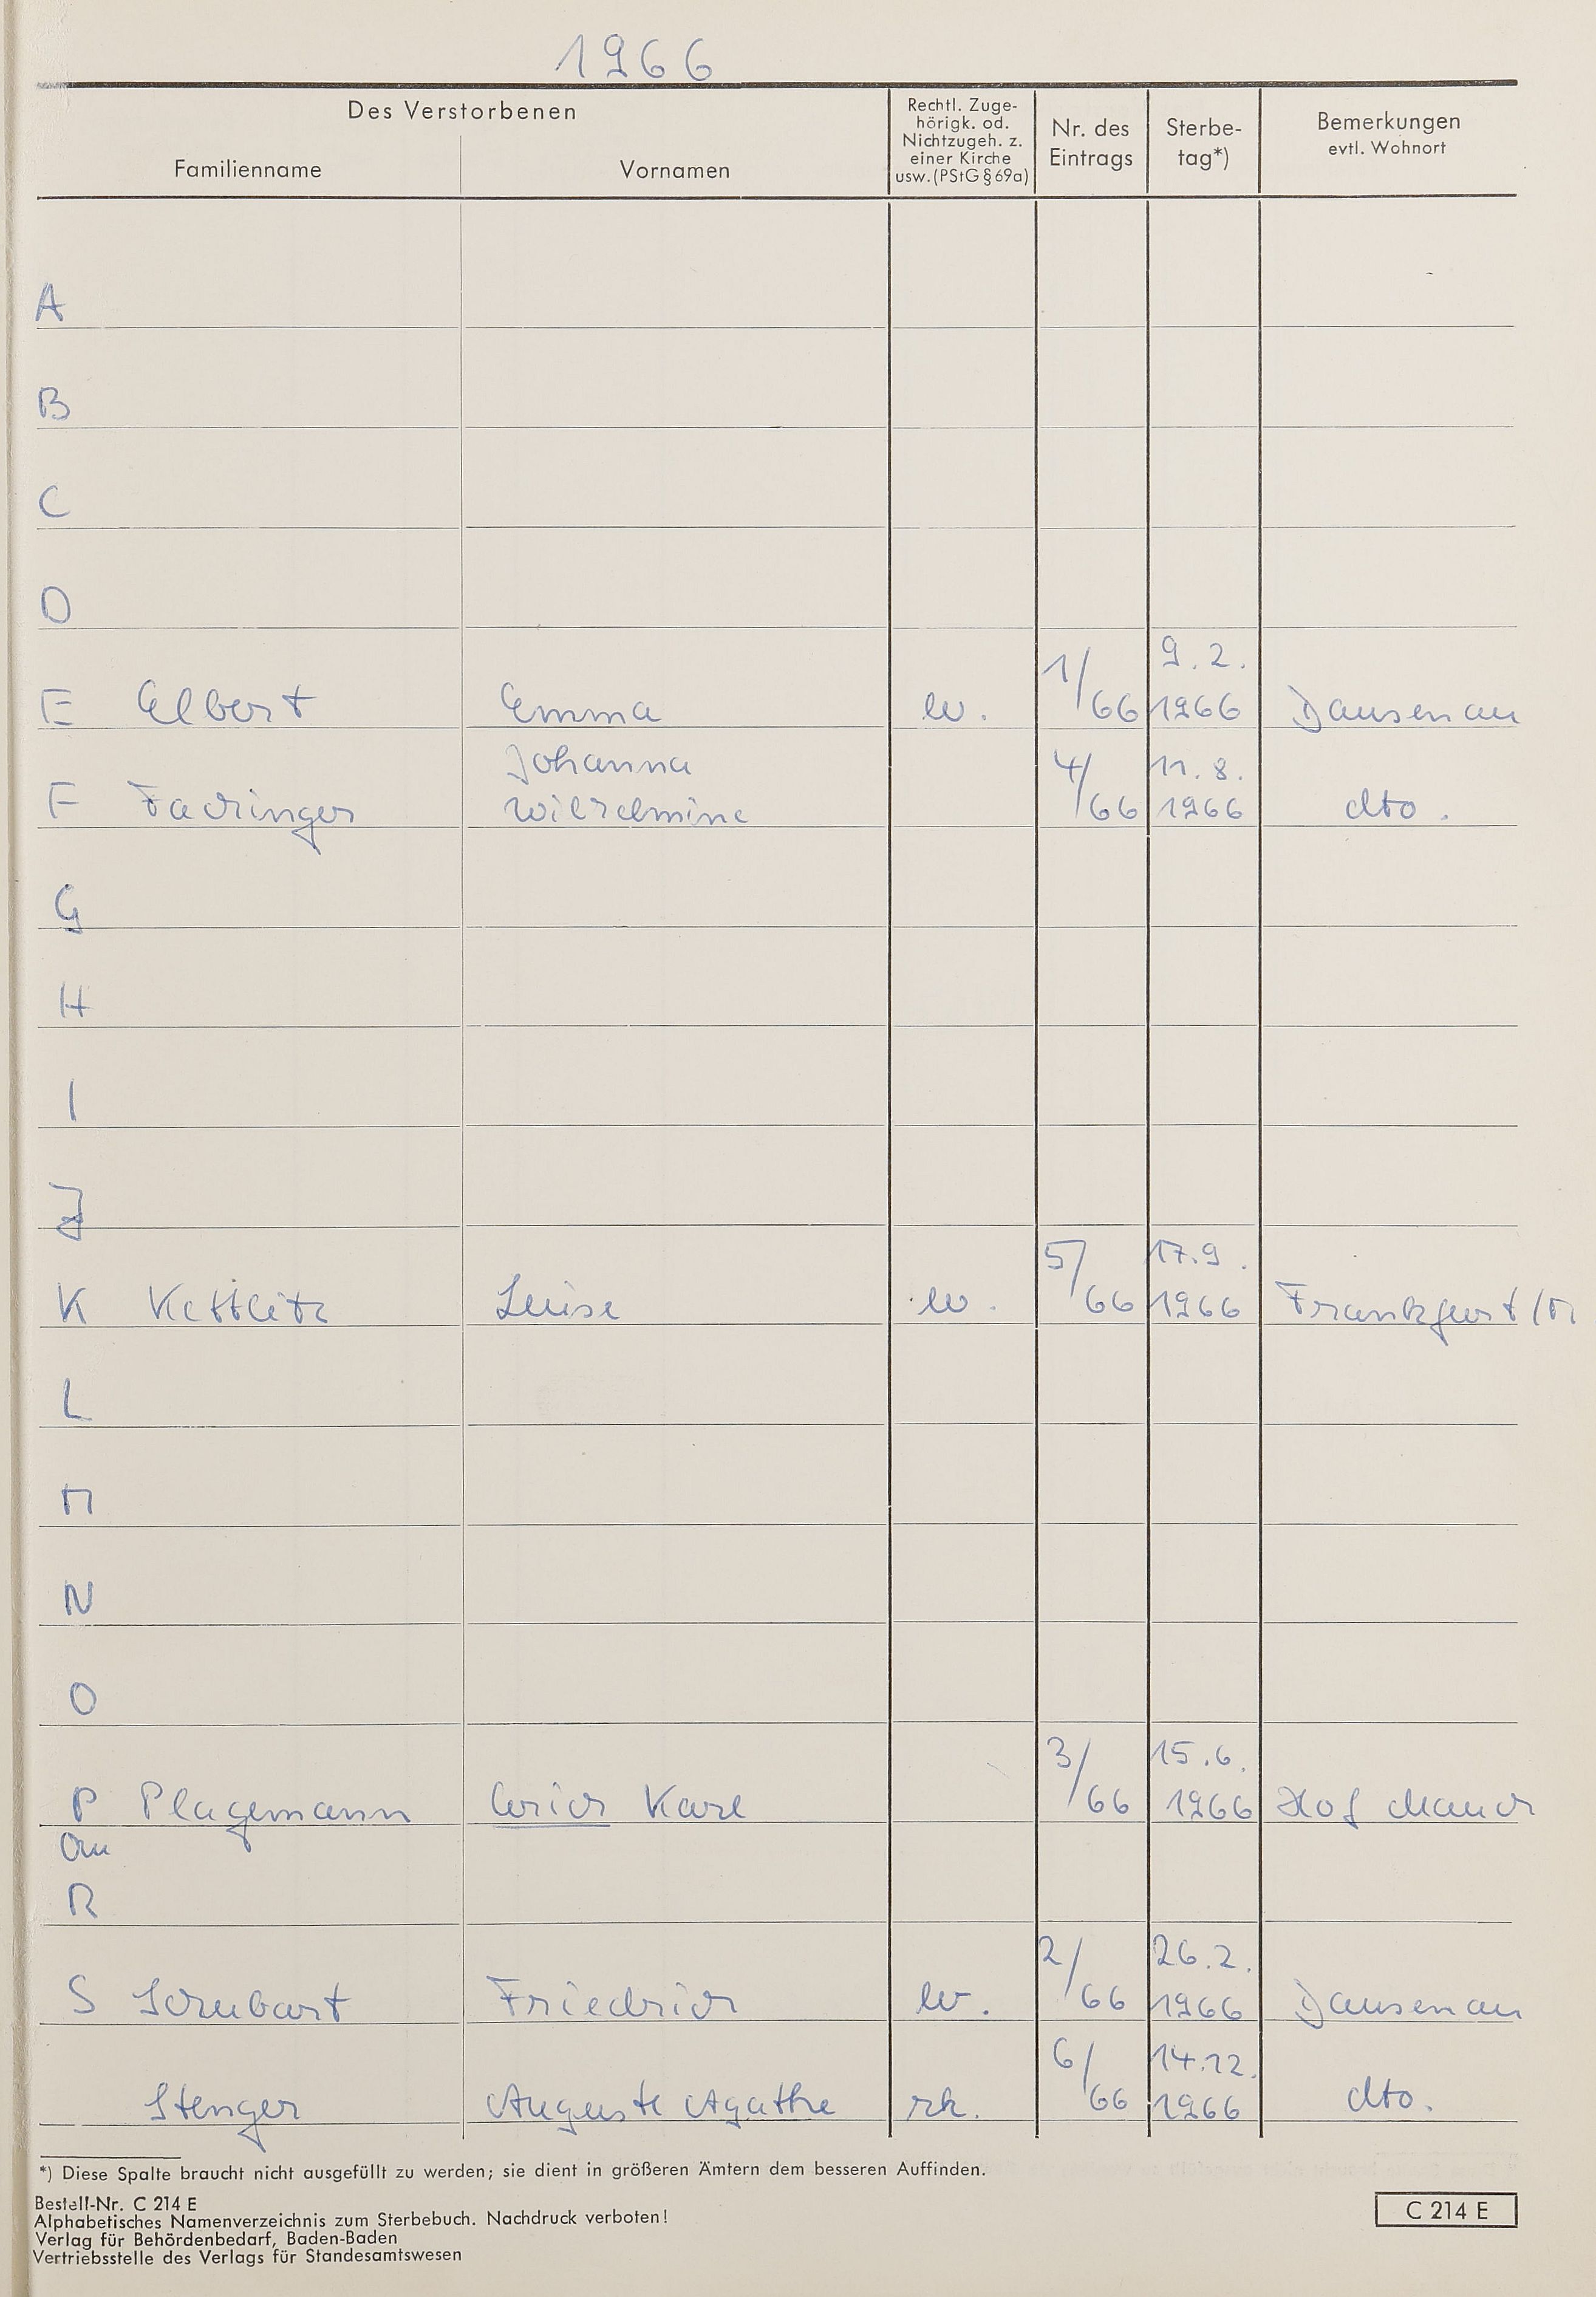 1966
Des Verstorbenen
Familienname
Vornamen
Rechtl. Zuge-
hörigk. od.
Nichtzugeh. z.
einer Kirche
usw. (PStG § 69a)
Nr. des
Eintrags
Sterbe-
tag*)
Bemerkungen
evtl. Wohnort
A
B
C
D
E Elbert Emma ev. 1/66 9.2. 1966 Dausenau
Johanna
F Fachinger Wilhelmine 4/66 11.8. 1966 dto.
G
H
I
J
K Kettlitz Luise ev. 5/66 17.9. 1966 Frankfurt/M
L
M
N
O
P Plagemann Erich Karl 3/66 15.6. 1966 Hof Mauch
Qu
R
S Schubart Friedrich ev. 2/66 26.2. 1966 Dausenau
Stenger Auguste Agathe rk. 6/66 14.12. 1966 dto.
*) Diese Spalte braucht nicht ausgefüllt zu werden; sie dient in größeren Ämtern dem besseren Auffinden.
Bestell-Nr. C 214 E
Alphabetisches Namenverzeichnis zum Sterbebuch. Nachdruck verboten!
Verlag für Behördenbedarf, Baden-Baden
Vertriebsstelle des Verlags für Standesamtswesen
C 214 E